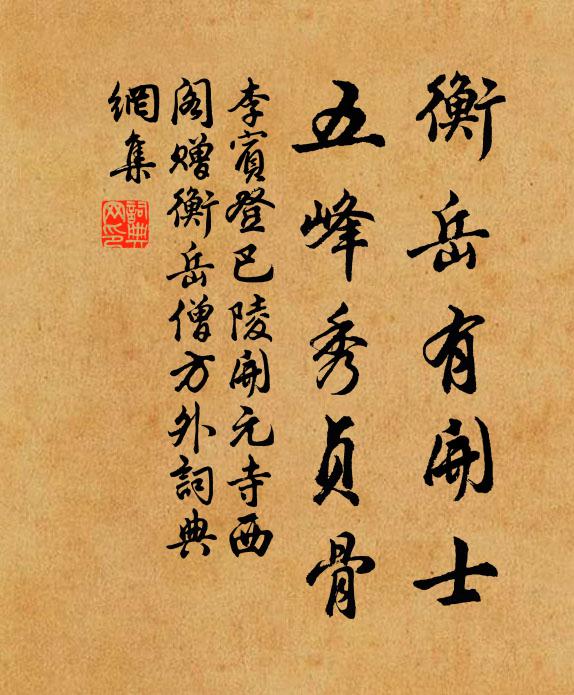 衡岳有開士
五峰秀貞骨
李賓登巴陵開元寺西
閣贈衡岳僧方外詞典
網集
詞典
网印